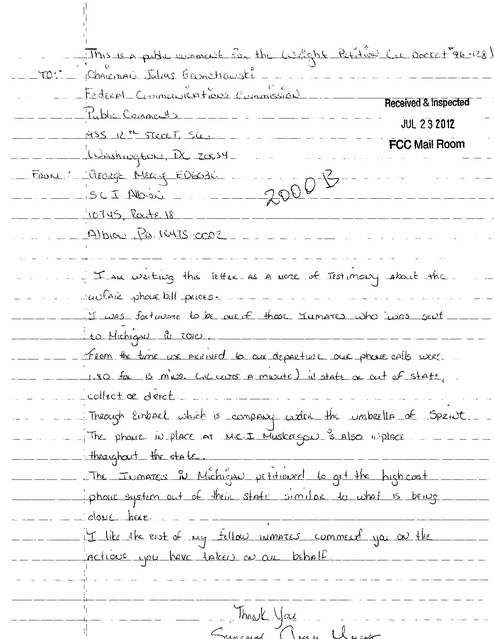 This is a public comment for the Wright Petition (CC Docket #96-128)
TO: Chairman Julius Genachowski
Federal Communications Commission
Public Comments
445 12th STREET, SW
Washington, DC 20554
Received & Inspected
JUL 23 2012
FCC Mail Room
From: George Mercy
SCI Albion
10745, Route 18
Albion, Pa. 16475-0002
2000 B
I am writing this letter as a note of Testimony about the
unfair phone bill prices.
I was fortunate to be one of those Inmates who was sent
to Michigan in 2010.
From the time we arrived to our departure our phone calls were
1.80 for 15 mins. (12 cents a minute) in state or out of state,
collect or direct.
Through Embark which is company under the umbrella of Sprint.
The phone in place at M.C.I Muskegon is also in place
throughout the state.
The Inmates in Michigan petitioned to get the high cost
phone system out of their state similar to what is being
done here.
I like the rest of my fellow inmates commend you on the
actions you have taken on our behalf
Thank You